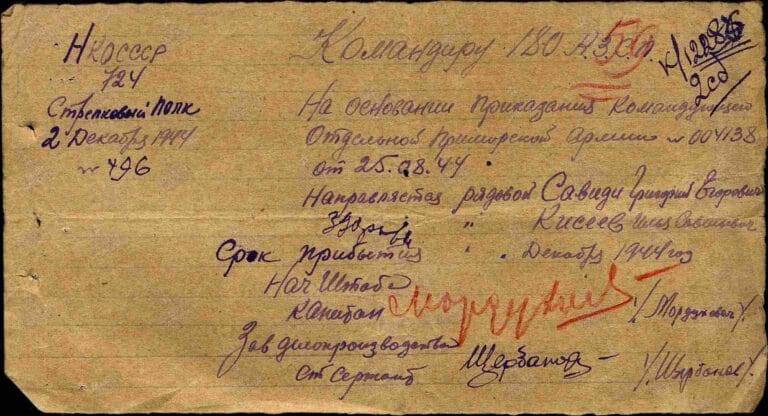 НКО СССР
724
Стрелковый Полк
2 Декабря 1944
№ 496
Командиру 180 А.З.С.П.
59
К/12286
2сб
На основании Приказания Командующего
Отдельной Приморской Армии № 004138
от 25.08.44
Направляется рядовой Савиди Григорий Егорович
" Кисеев
Срок прибытия " " Декабря 1944 год
Нач Штаба
Капитан /Мордухович/.
Зав делопроизводства
Ст Сержант Щербаков /Щербаков/.